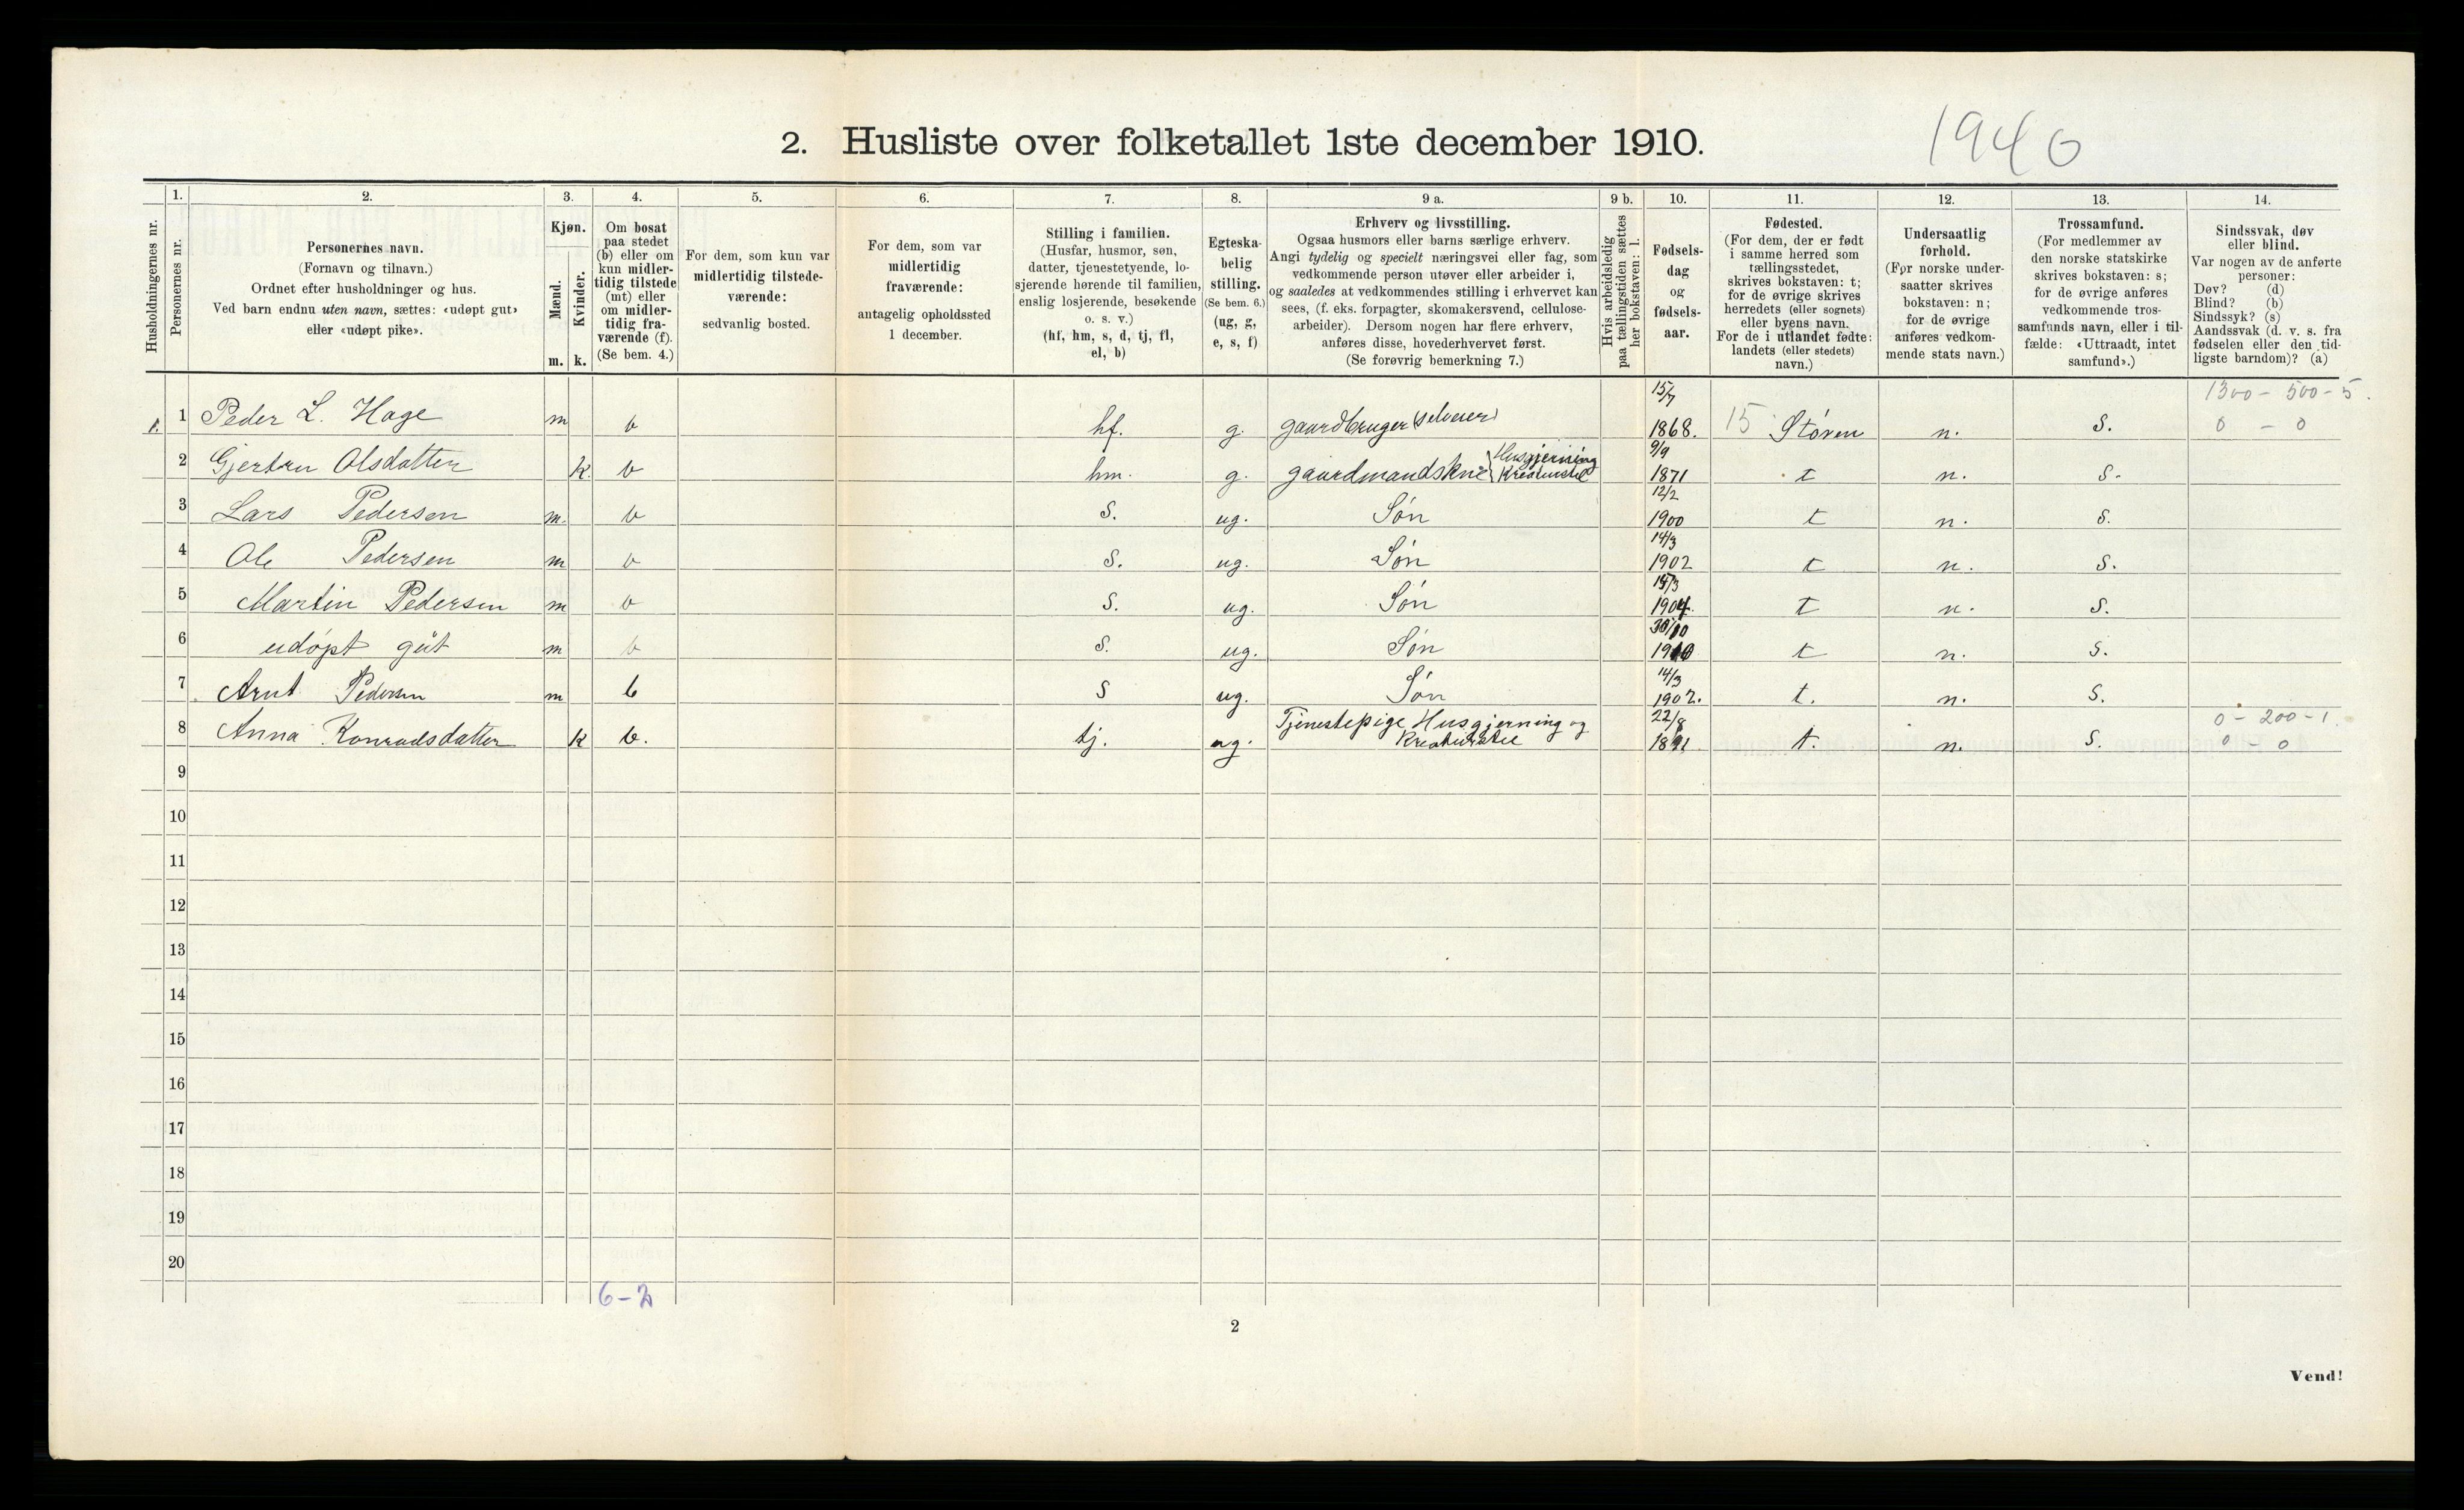 2. Husliste over folketallet 1ste december 1910.
1940
1.
2.
3.
4.
5.
6.
7.
8.
9 a.
9 b.
10.
11.
12.
13.
14.
Husholdningernes nr.
Personernes nr.
Personernes navn.
(Fornavn og tilnavn.)
Ordnet efter husholdninger og hus.
Ved barn endnu uten navn, sættes: «udøpt gut»
eller «udøpt pike».
Kjøn.
Mænd.
Kvinder.
m. k.
Om bosat
paa stedet
(b) eller om
kun midler-
tidig tilstede
(mt) eller
om midler-
tidig fra-
værende (f).
(Se bem. 4.)
For dem, som kun var
midlertidig tilstede-
værende:
sedvanlig bosted.
For dem, som var
midlertidig
fraværende:
antagelig opholdssted
1 december.
Stilling i familien.
(Husfar, husmor, søn,
datter, tjenestetyende, lo-
sjerende hørende til familien,
enslig losjerende, besøkende
o. s. v.)
(hf, hm, s, d, tj, fl,
el, b)
Egteska-
belig
stilling.
(Se bem. 6.)
(ug, g,
e, s, f)
Erhverv og livsstilling.
Ogsaa husmors eller barns særlige erhverv.
Angi tydelig og specielt næringsvei eller fag, som
vedkommende person utøver eller arbeider i,
og saaledes at vedkommendes stilling i erhvervet kan
sees, (f. eks. forpagter, skomakersvend, cellulose-
arbeider). Dersom nogen har flere erhverv,
anføres disse, hovederhvervet først.
(Se forøvrig bemerkning 7.)
Hvis arbeidsledig
paa tællingstiden sættes
her bokstaven: l.
Fødsels-
dag
og
fødsels-
aar.
Fødested.
(For dem, der er født
i samme herred som
tællingsstedet,
skrives bokstaven: t;
for de øvrige skrives
herredets (eller sognets)
eller byens navn.
For de i utlandet fødte:
landets (eller stedets)
navn.)
Undersaatlig
forhold.
(For norske under-
saatter skrives
bokstaven: n;
for de øvrige
anføres vedkom-
mende stats navn.)
Trossamfund.
(For medlemmer av
den norske statskirke
skrives bokstaven: s;
for de øvrige anføres
vedkommende tros-
samfunds navn, eller i til-
fælde: «Uttraadt, intet
samfund».)
Sindssvak, døv
eller blind.
Var nogen av de anførte
personer:
Døv? (d)
Blind? (b)
Sindssyk? (s)
Aandssvak (d. v. s. fra
fødselen eller den tid-
ligste barndom)? (a)
15/7 1300 - 500 - 5.
1. 1 Peder L. Hage m b hf. g. gaardbruger (selveier) 1868. 15 Støren n. S. 0 - 0
9/9
2 Gjertru Olsdatter k. b hm. g. gaardmandskne { Husgjerning Kreaturstel 1871 t n. S.
12/2
3 Lars Pedersen m. b S. ug. Søn 1900 t n. S.
14/3
4 Ole Pedersen m b S. ug. Søn 1902 t n. S.
15/3
5 Martin Pedersen m b S. ug. Søn 1904. t n. S.
30/10
6 udøpt gut m b S. ug. Søn 1910 t n. S.
14/3
7 Arnt Pedersen m b S ug. Søn 1902. t. n. S.
22/8 0 - 200 - 1.
8 Anna Konradsdatter k b. tj. ug. Tjenestepige Husgjerning og Kreaturstel 1891 t. n. S. 0 - 0
9
10
11
12
13
14
15
16
17
18
19
20
6-2
2
Vend!